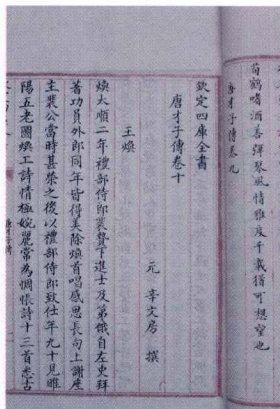 荀鶴嗜酒善彈琴風情雅度千載猶可想望也
唐才子傳卷九
欽定四庫全書
唐才子傳卷十
元 辛文房 撰
王煥
煥大順二年禮部侍郎裴贄下進士及第俄自左史拜
考功員外郎同年皆得美除煥首唱感恩長句上謝座
主裴公當時甚榮之後以禮部侍郎致仕年九十見睢
陽五老圖煥工詩情極婉麗常為惆悵詩十三首悉古